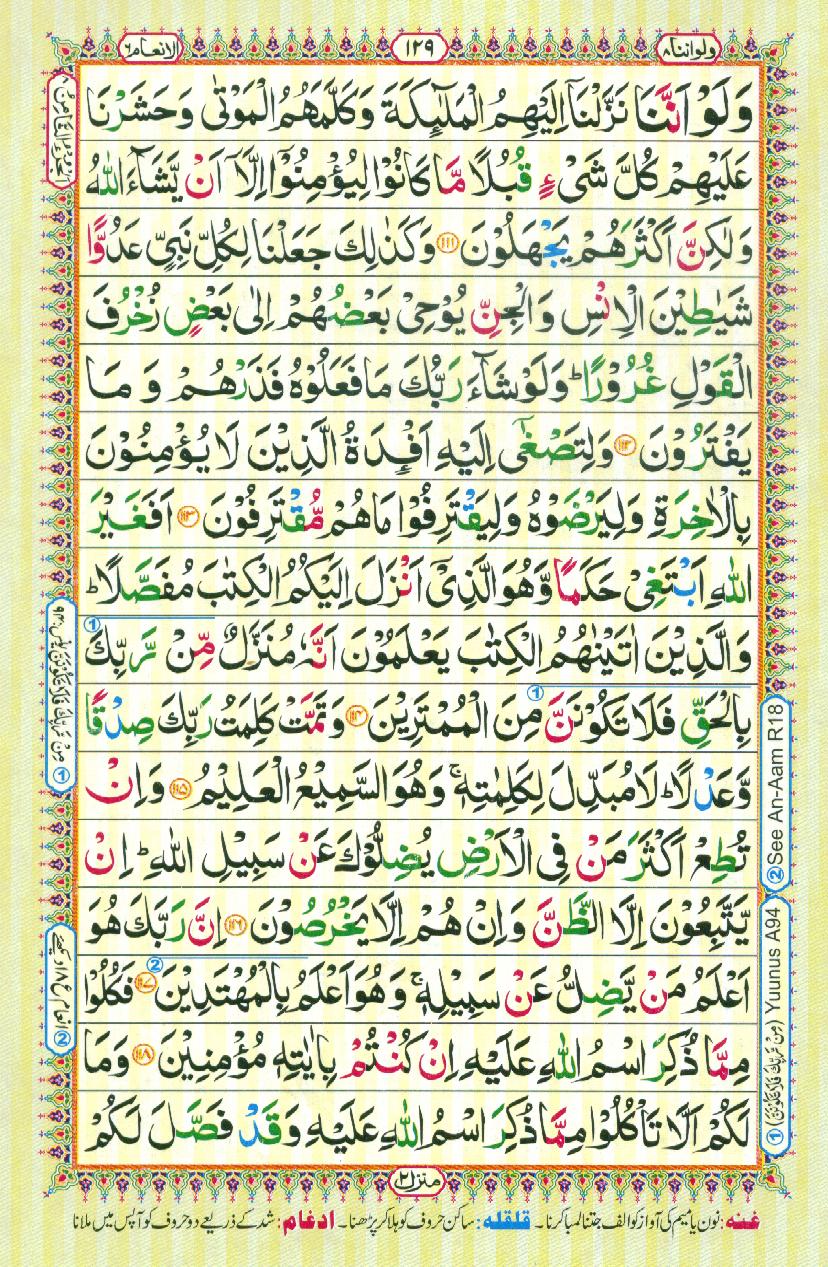 ولواننا ۸
۱۲۹
الانعام ٦
وَلَوْ اَنَّنَا نَزَّلْنَاۤ اِلَيْهِمُ الْمَلٰٓئِكَةَ وَكَلَّمَهُمُ الْمَوْتٰى وَحَشَرْنَا
عَلَيْهِمْ كُلَّ شَىْءٍ قُبُلًا مَّا كَانُوْا لِيُؤْمِنُوْۤا اِلَّاۤ اَنْ يَّشَآءَ اللّٰهُ
وَلٰكِنَّ اَكْثَرَهُمْ يَجْهَلُوْنَ ﴿۱۱۱﴾ وَكَذٰلِكَ جَعَلْنَا لِكُلِّ نَبِىٍّ عَدُوًّا
شَيٰطِيْنَ الْاِنْسِ وَالْجِنِّ يُوْحِىْ بَعْضُهُمْ اِلٰى بَعْضٍ زُخْرُفَ
الْقَوْلِ غُرُوْرًا ؕ وَلَوْ شَآءَ رَبُّكَ مَا فَعَلُوْهُ فَذَرْهُمْ وَمَا
يَفْتَرُوْنَ ﴿۱۱۲﴾ وَلِتَصْغٰٓى اِلَيْهِ اَفْـِٕدَةُ الَّذِيْنَ لَا يُؤْمِنُوْنَ
بِالْاٰخِرَةِ وَلِيَرْضَوْهُ وَلِيَقْتَرِفُوْا مَا هُمْ مُّقْتَرِفُوْنَ ﴿۱۱۳﴾ اَفَغَيْرَ
اللّٰهِ اَبْتَغِىْ حَكَمًا وَّهُوَ الَّذِىْۤ اَنْزَلَ اِلَيْكُمُ الْكِتٰبَ مُفَصَّلًا ؕ
وَالَّذِيْنَ اٰتَيْنٰهُمُ الْكِتٰبَ يَعْلَمُوْنَ اَنَّهٗ مُنَزَّلٌ مِّنْ رَّبِّكَ
بِالْحَقِّ فَلَا تَكُوْنَنَّ مِنَ الْمُمْتَرِيْنَ ﴿۱۱۴﴾ وَتَمَّتْ كَلِمَتُ رَبِّكَ صِدْقًا
وَّعَدْلًا ؕ لَا مُبَدِّلَ لِكَلِمٰتِهٖ ۚ وَهُوَ السَّمِيْعُ الْعَلِيْمُ ﴿۱۱۵﴾ وَاِنْ
تُطِعْ اَكْثَرَ مَنْ فِى الْاَرْضِ يُضِلُّوْكَ عَنْ سَبِيْلِ اللّٰهِ ؕ اِنْ
يَّتَّبِعُوْنَ اِلَّا الظَّنَّ وَاِنْ هُمْ اِلَّا يَخْرُصُوْنَ ﴿۱۱۶﴾ اِنَّ رَبَّكَ هُوَ
اَعْلَمُ مَنْ يَّضِلُّ عَنْ سَبِيْلِهٖ ۚ وَهُوَ اَعْلَمُ بِالْمُهْتَدِيْنَ ﴿۱۱۷﴾ فَكُلُوْا
مِمَّا ذُكِرَ اسْمُ اللّٰهِ عَلَيْهِ اِنْ كُنْتُمْ بِاٰيٰتِهٖ مُؤْمِنِيْنَ ﴿۱۱۸﴾ وَمَا
لَكُمْ اَلَّا تَاْكُلُوْا مِمَّا ذُكِرَ اسْمُ اللّٰهِ عَلَيْهِ وَقَدْ فَصَّلَ لَكُمْ
② See An-Aam R18
① (مِنْ رَّبِّكَ فَلَا تَكُوْنَنَّ) Yuunus A94
منزل ۲
غنه: نون یا میم کی آواز کو الف جتنا لمبا کرنا۔ قلقله: ساکن حروف کو ہلا کر پڑھنا۔ ادغام: شد کے ذریعے دو حروف کو آپس میں ملانا